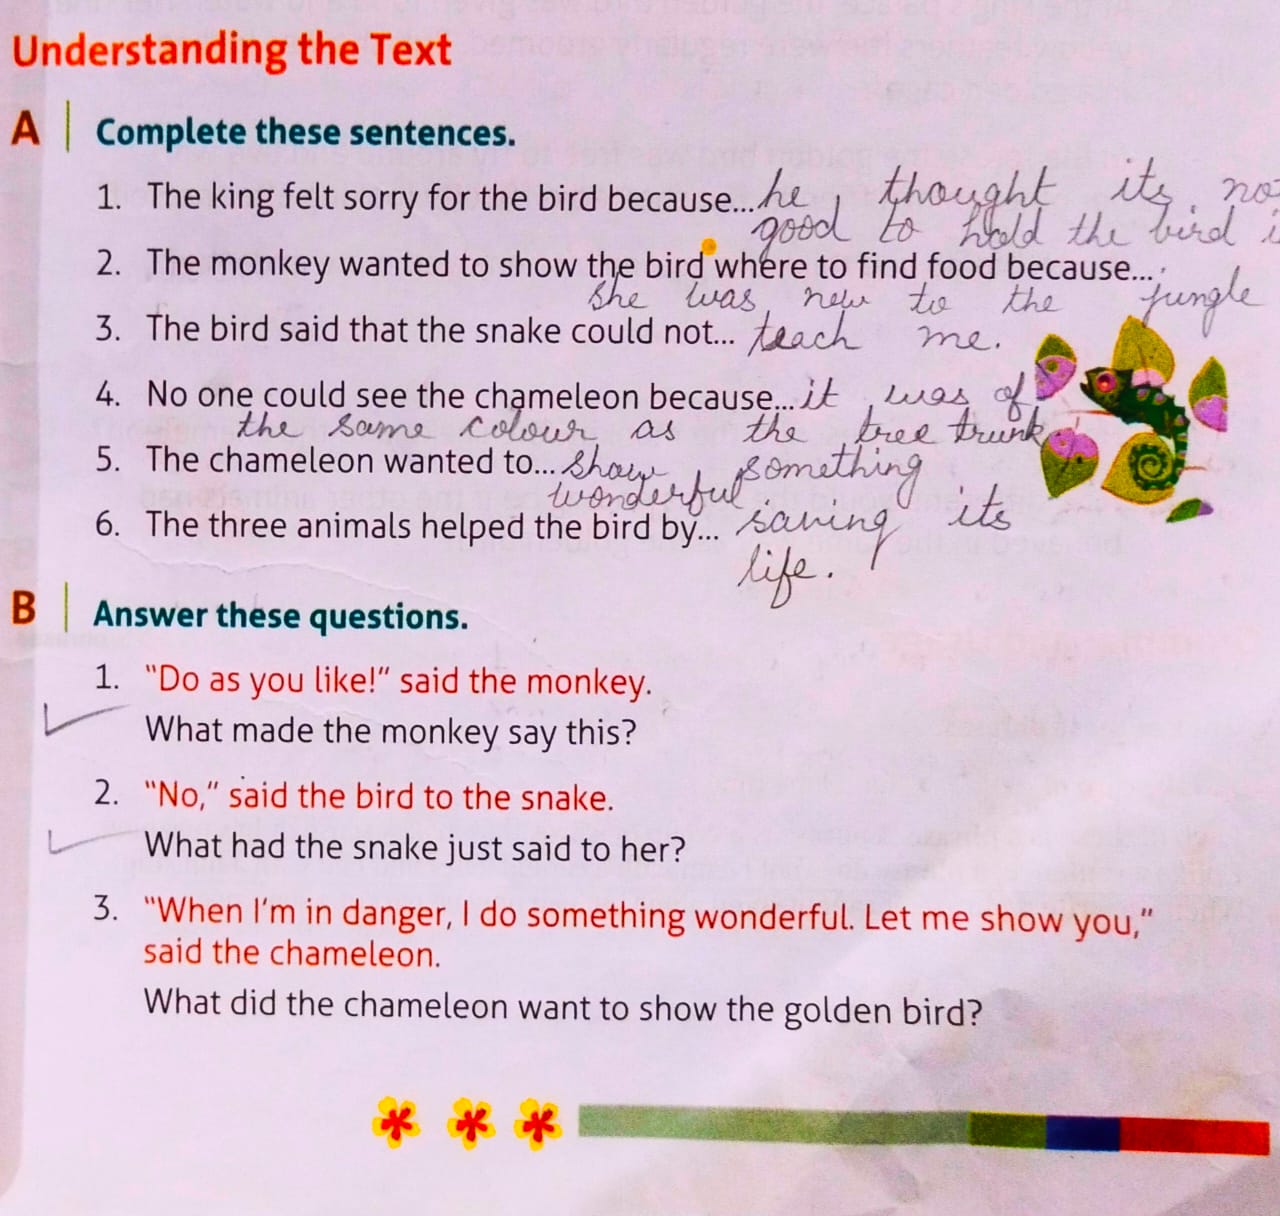 Understanding the Text
A Complete these sentences.
1. The king felt sorry for the bird because... he thought its
good to hold the bird
2. The monkey wanted to show the bird where to find food because...
she was new to the jungle
3. The bird said that the snake could not... teach me.
4. No one could see the chameleon because... it was of
the same colour as the tree trunk
5. The chameleon wanted to... show something
wonderful
6. The three animals helped the bird by... saving its
life.
B Answer these questions.
1. "Do as you like!" said the monkey.
What made the monkey say this?
2. "No," said the bird to the snake.
What had the snake just said to her?
3. "When I'm in danger, I do something wonderful. Let me show you,"
said the chameleon.
What did the chameleon want to show the golden bird?